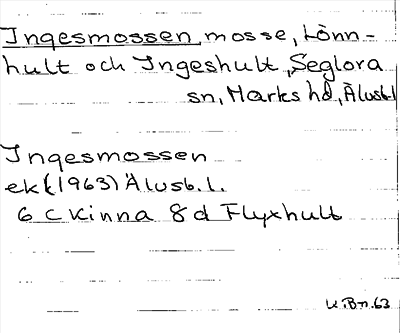 Ingesmossen, mosse, Lönn-
hult och Ingeshult, Seglora
sn, Marks hd, Älvsb.l
Ingesmossen
ek (1963) Älvsb. l.
6 C Kinna 8 d Flyxhult
U.Bn.63